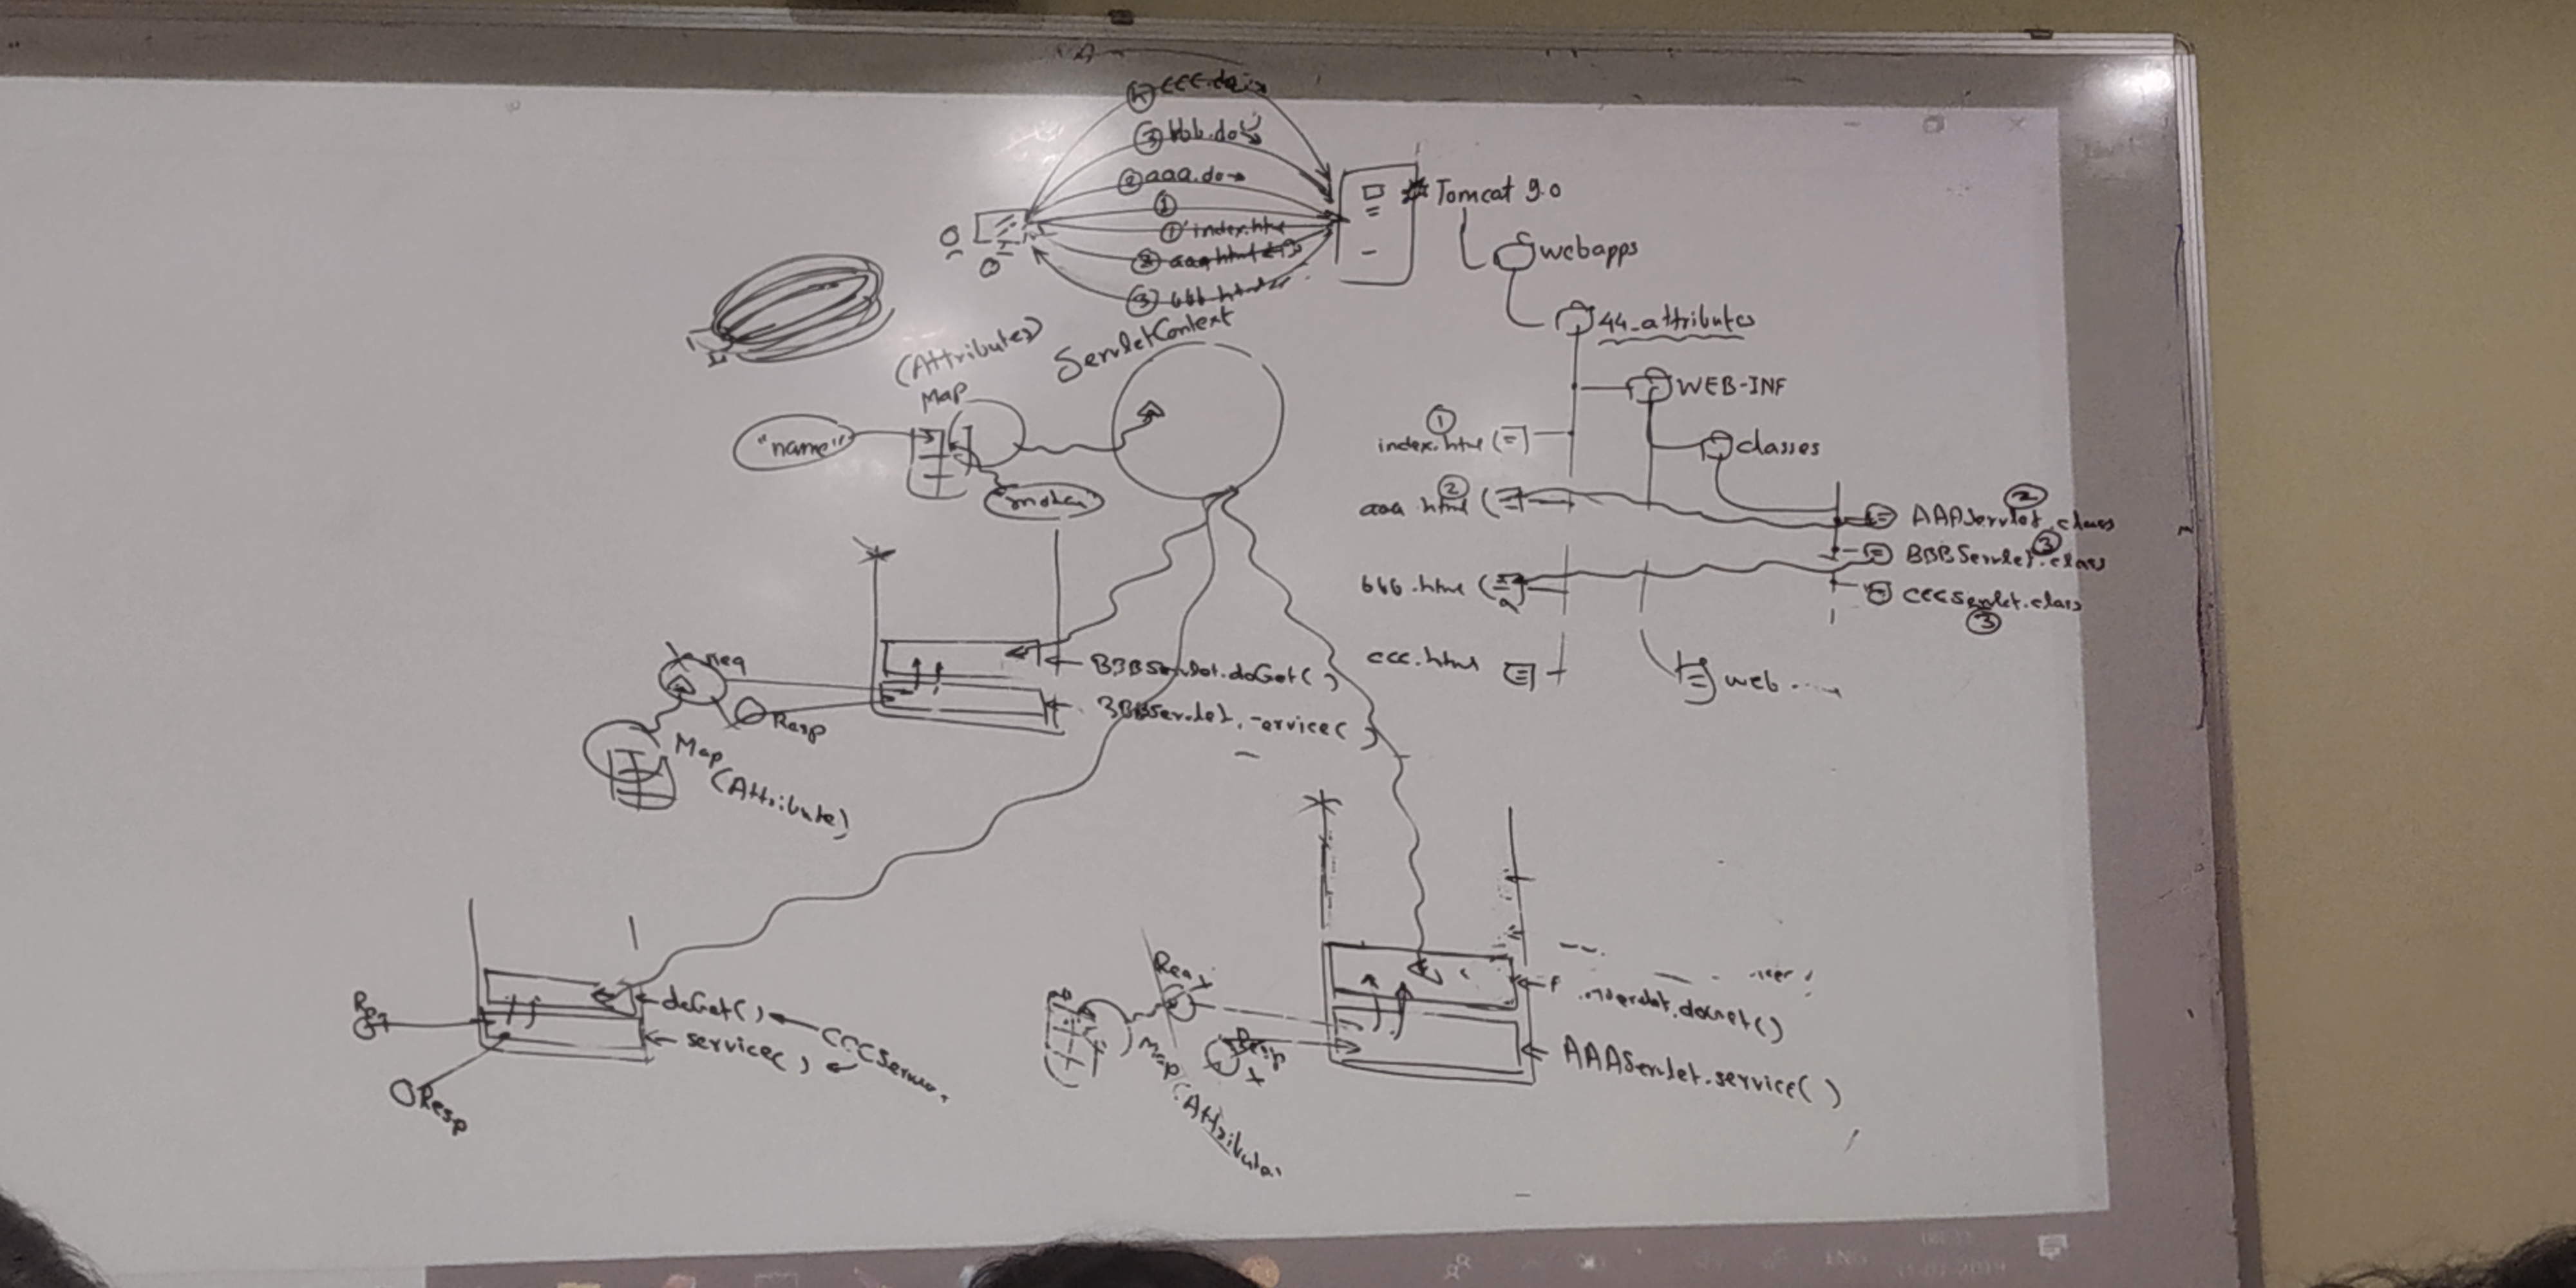 ④ ccc.do
③ bbb.do
② aaa.do
①
① index.html
② aaa.html
③ bbb.html
Tomcat 9.0
webapps
44_attributes
WEB-INF
classes
① index.html
② aaa.html
bbb.html
ccc.html
② AAAServlet.class
③ BBBServlet.class
CCCServlet.class
③
web ....
(Attributes)
Map
ServletContext
"name"
BBBServlet.doGet( )
BBBServlet.service( )
Req
Resp
Map
(Attribute)
doGet( )
service( )
Req
Resp
Req
Resp
Map
AAAServlet.service( )
ENG